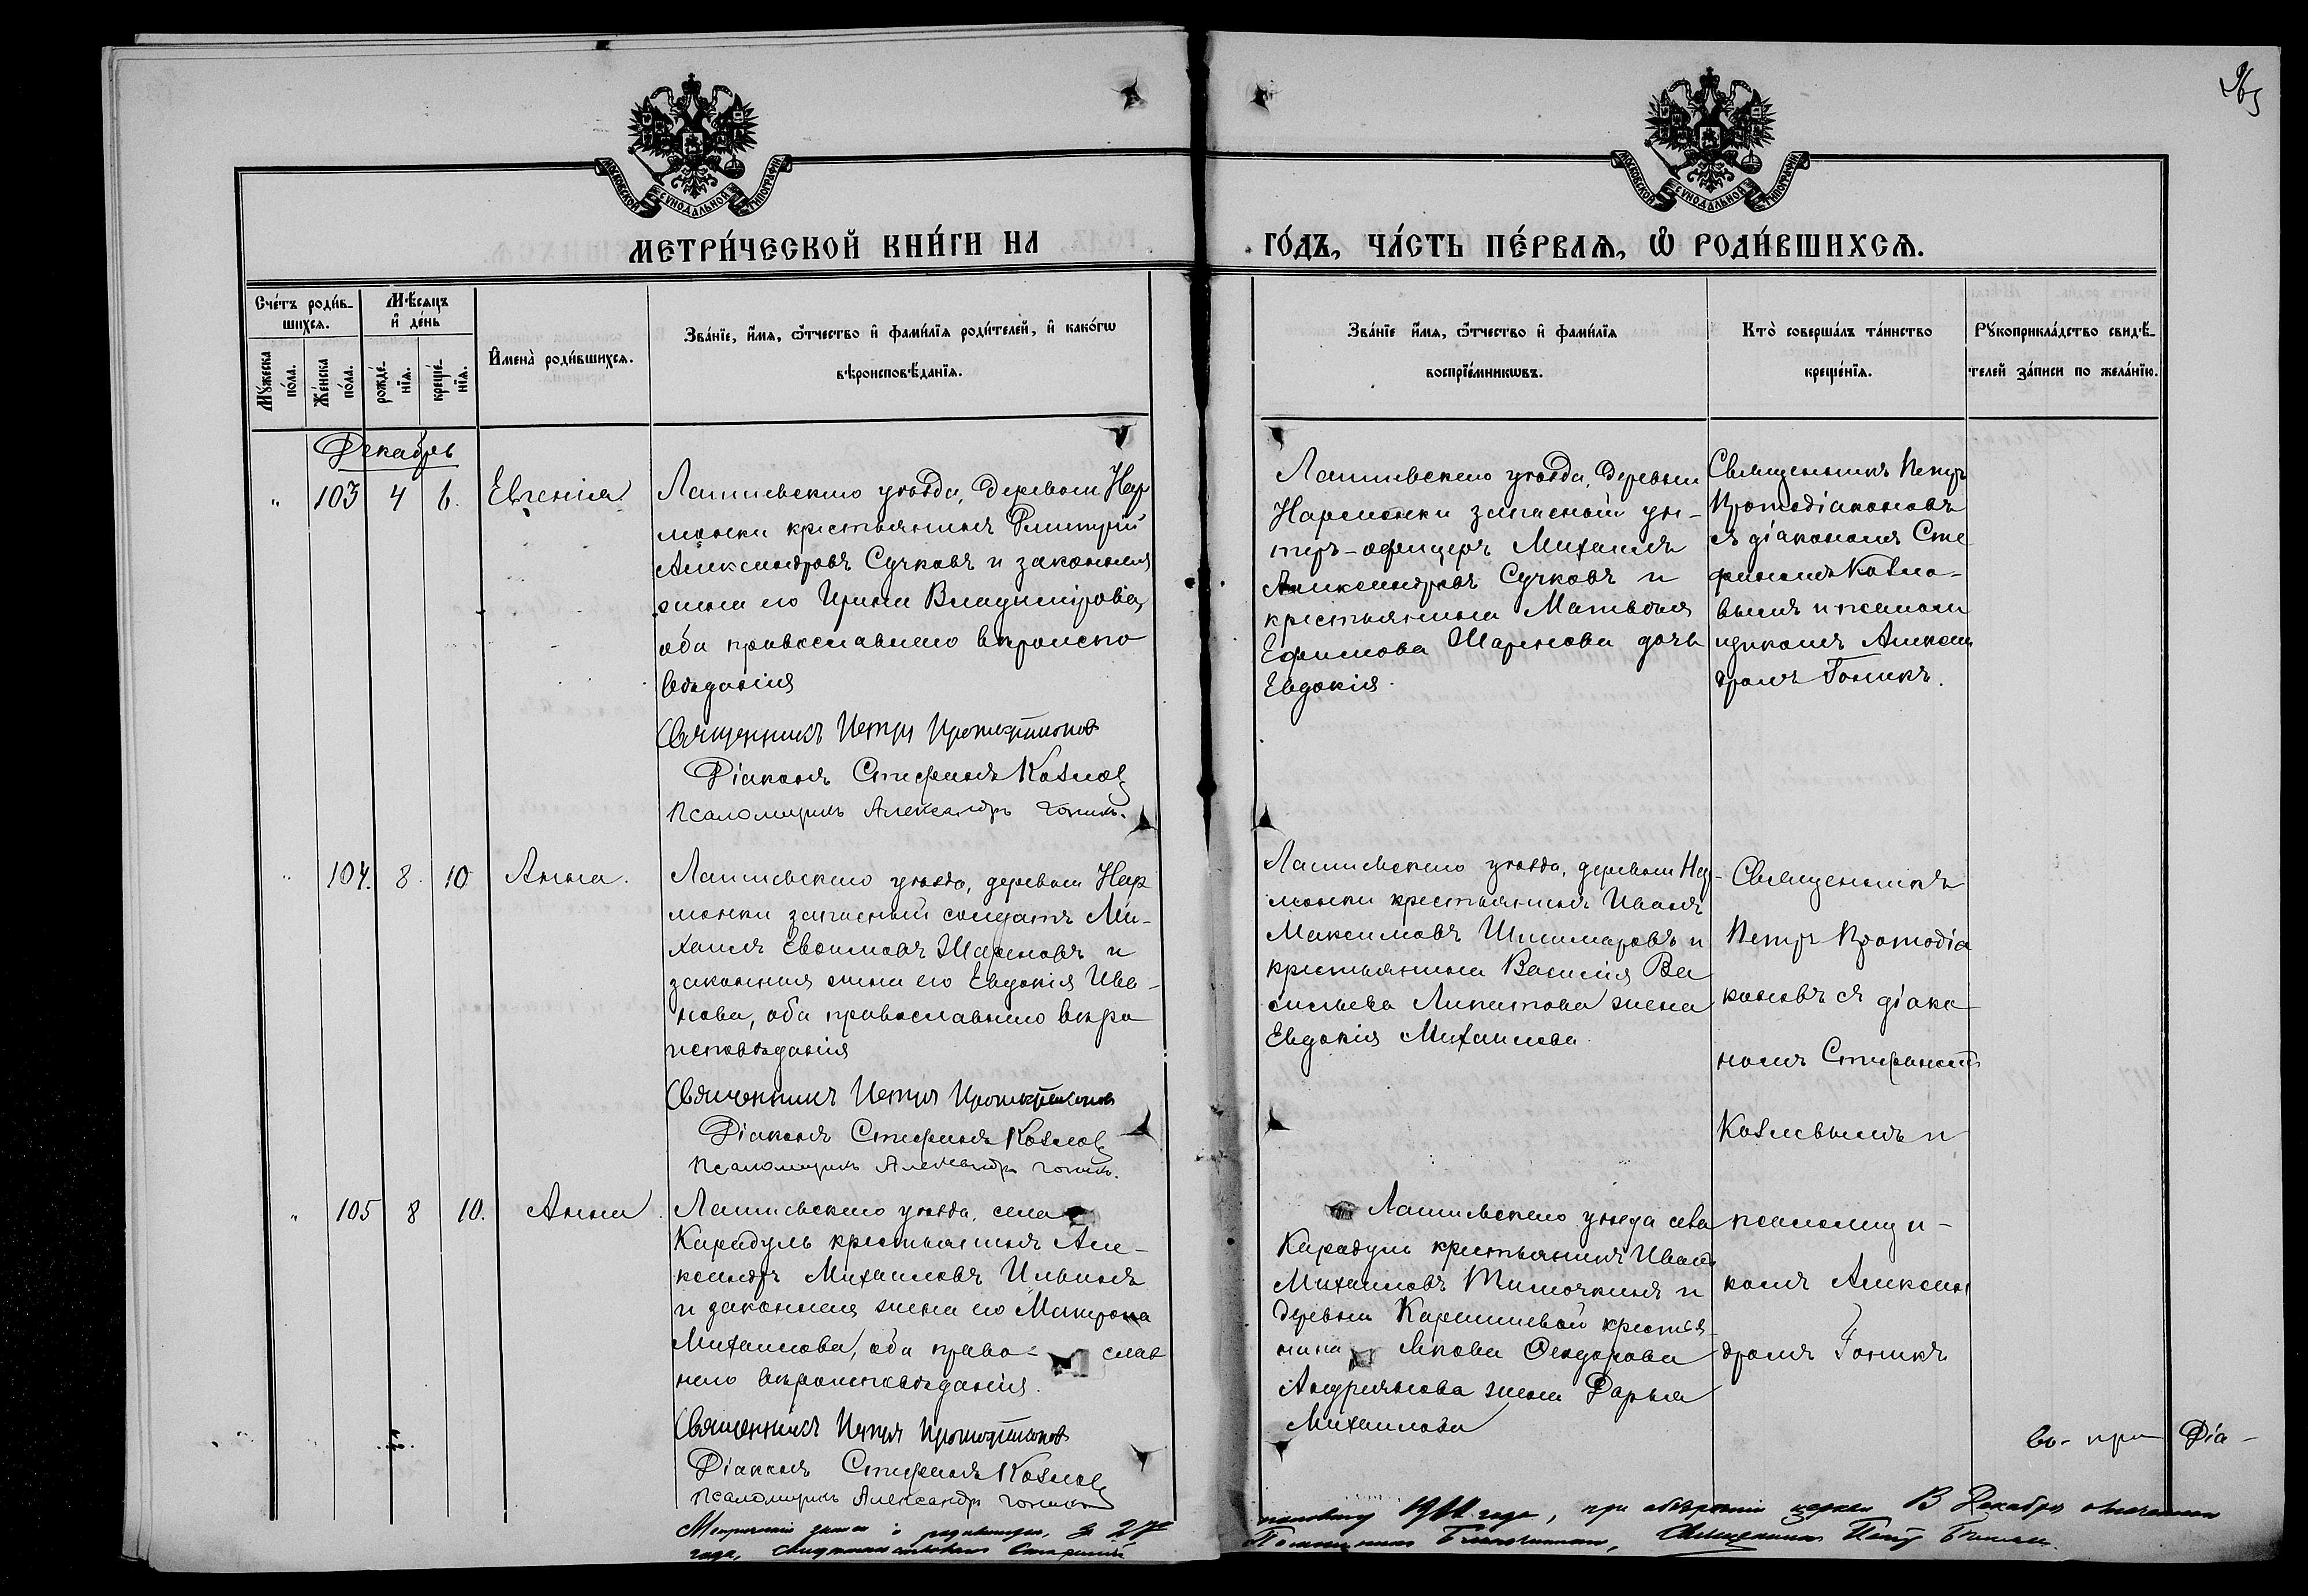 965
МОСКОВСКОЙ СѴНОДАЛЬНОЙ ТИПОГРАФІИ
МОСКОВСКОЙ СѴНОДАЛЬНОЙ ТИПОГРАФІИ
МЕТРИ́ЧЕСКОЙ КНИ́ГИ НА
ГО́ДЪ, ЧА́СТЬ ПЕ́РВАѦ, Ѡ҆ РОДИ́ВШИХСѦ.
Сче́тъ роди́в-
шихсѧ.
Мѣ́сѧцъ
и҆ де́нь
Мꙋ́жеска
по́ла.
Же́нска
по́ла.
рожде́-
нїѧ.
креще́-
нїѧ.
И҆мена̀ роди́вшихсѧ.
Зва́нїе, и҆́мѧ, ѻ҆́тчество и҆ фами́лїѧ роди́телей, и҆ како́гѡ
вѣроисповѣ́данїѧ.
Зва́нїе и҆́мѧ, ѻ҆́тчество и҆ фами́лїѧ
воспрїе́мникѡвъ.
Кто̀ соверша́лъ та́инство
креще́нїѧ.
Рꙋкоприкла́дство свидѣ́-
телей за́писи по жела́нїю.
Декабрь
" 103 4 6. Евгенія
Лаишевскаго уѣзда, деревни Нар
монки крестьянинъ Димитрій
Александровъ Сучковъ и законная
жена его Ирина Владимірова,
оба православнаго вѣроиспо
вѣданія
Священникъ Петръ Протодіаконов
Діаконъ Стефанъ Козлов
Псаломщикъ Александръ Гоникъ.
Лаишевскаго уѣзда, деревни
Нармонки запасный ун-
теръ-офицеръ Михаилъ
Александровъ Сучковъ и
крестьянина Матвѣя
Ефимова Шаронова дочь
Евдокія.
Священникъ Петръ
Протодіаконовъ
съ діакономъ Сте
фаномъ Козло-
вымъ и псалом
щикомъ Алексан
дромъ Гоникъ.
" 104. 8. 10 Анна.
Лаишевскаго уѣзда, деревни Нар
монки запасный солдатъ Ми-
хаилъ Евфимовъ Шароновъ и
законная жена его Евдокія Ива-
нова, оба православнаго вѣро
исповѣданія
Священникъ Петръ Протодіаконов
Діаконъ Стефанъ Козлов
Псаломщикъ Александръ Гоникъ.
Лаишевскаго уѣзда, деревни Нар-
монки крестьянинъ Иванъ
Максимовъ Шишмаровъ и
крестьянина Василія Ва
сильева Липатова жена
Евдокія Михаилова.
Священникъ
Петръ Протодіа
коновъ съ діако
номъ Стефаномъ
Козловымъ и
" 105 8 10. Анна.
Лаишевскаго уѣзда, села
Карадуль крестьянинъ Але-
ксандръ Михаиловъ Ильинъ
и законная жена его Матрона
Михаилова, оба право- слав
наго вѣроисповѣданія.
Священникъ Петръ Протодіаконов
Діаконъ Стефанъ Козлов
Псаломщикъ Александръ Гоникъ
Лаишевскаго уѣзда села
Карадули крестьянинъ Иванъ
Михаиловъ Тимочкинъ и
деревни Карашевой крестья-
нина Якова Ѳеодорова
Андріянова жена Дарья
Михаилова
псаломщи-
комъ Алексан
дромъ Гоникъ
во- при Діа-
года, при обозрѣніи церкви В Декабрѣ
Священникъ Петръ